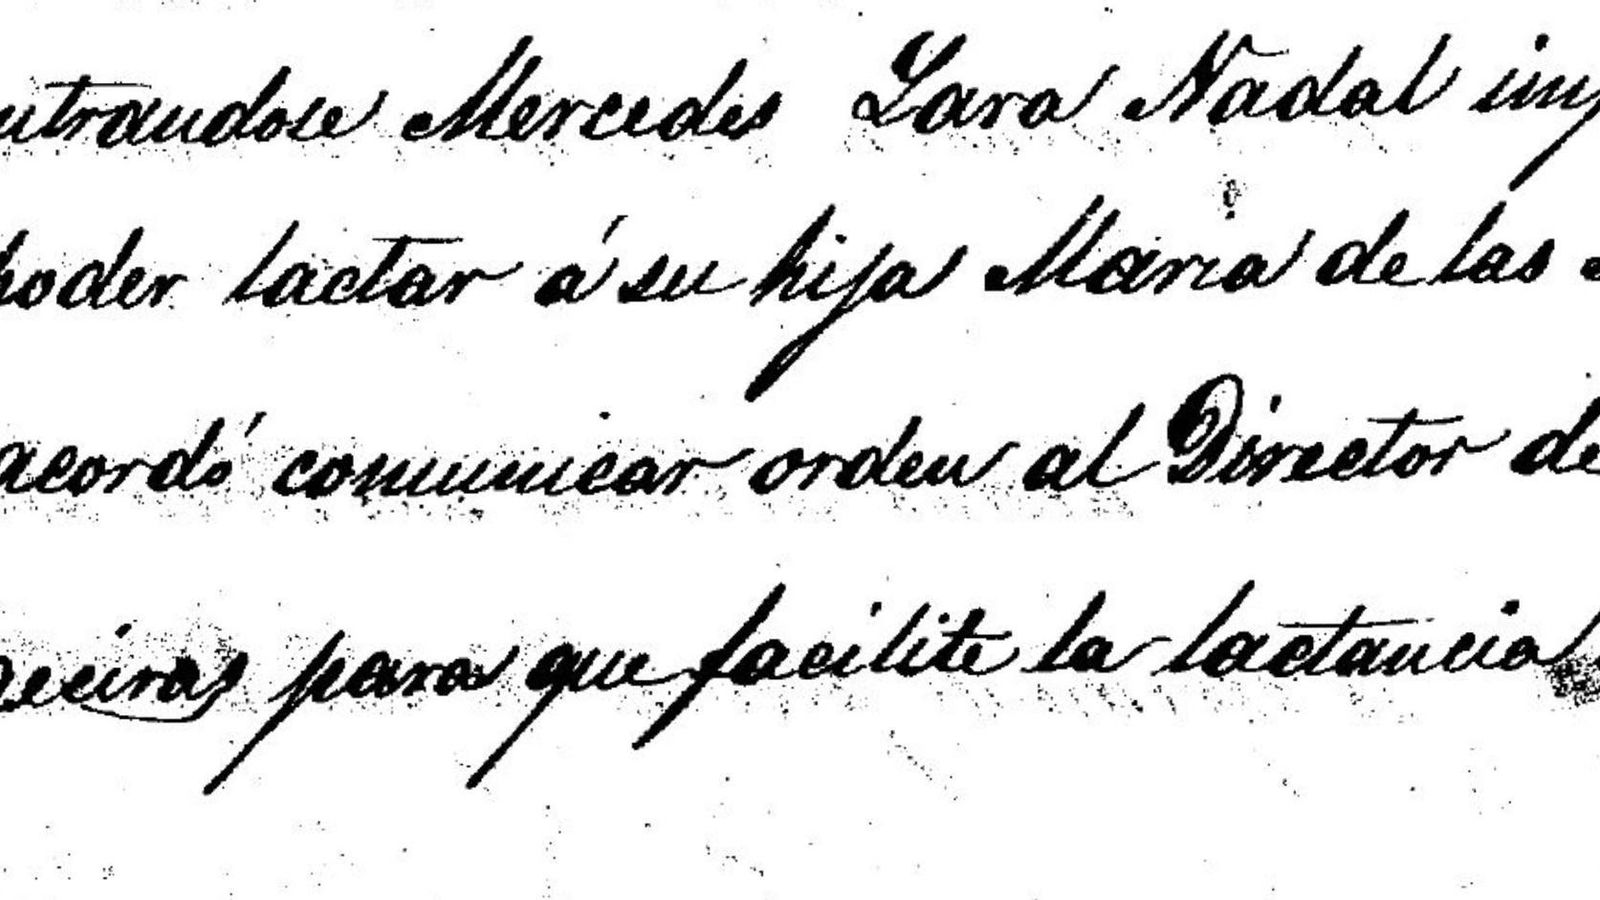 ntrandose Mercedes Lara Nadal imp
poder lactar á su hija Maria de las
acordó comunicar orden al Director de
geciras para que facilite la lactancia